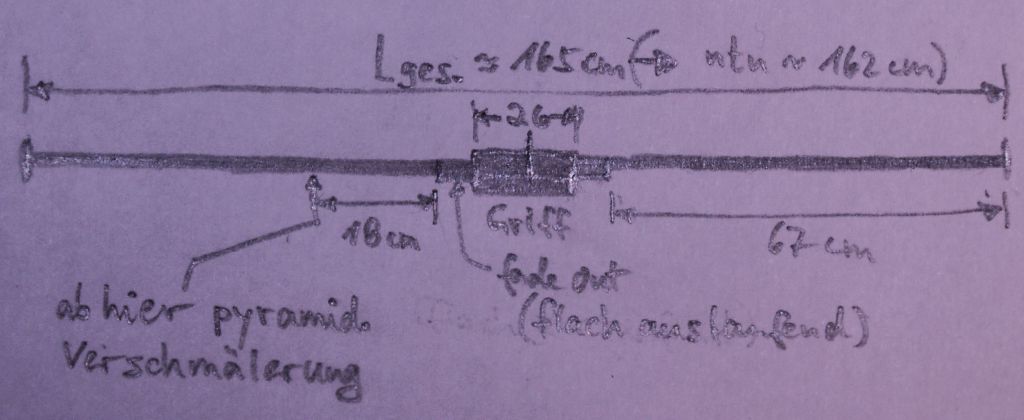 Lges. ≈ 165 cm (→ ntn ~ 162 cm)
26
18 cm
Griff
67 cm
fade out
(flach auslaufend)
ab hier pyramid.
Verschmälerung